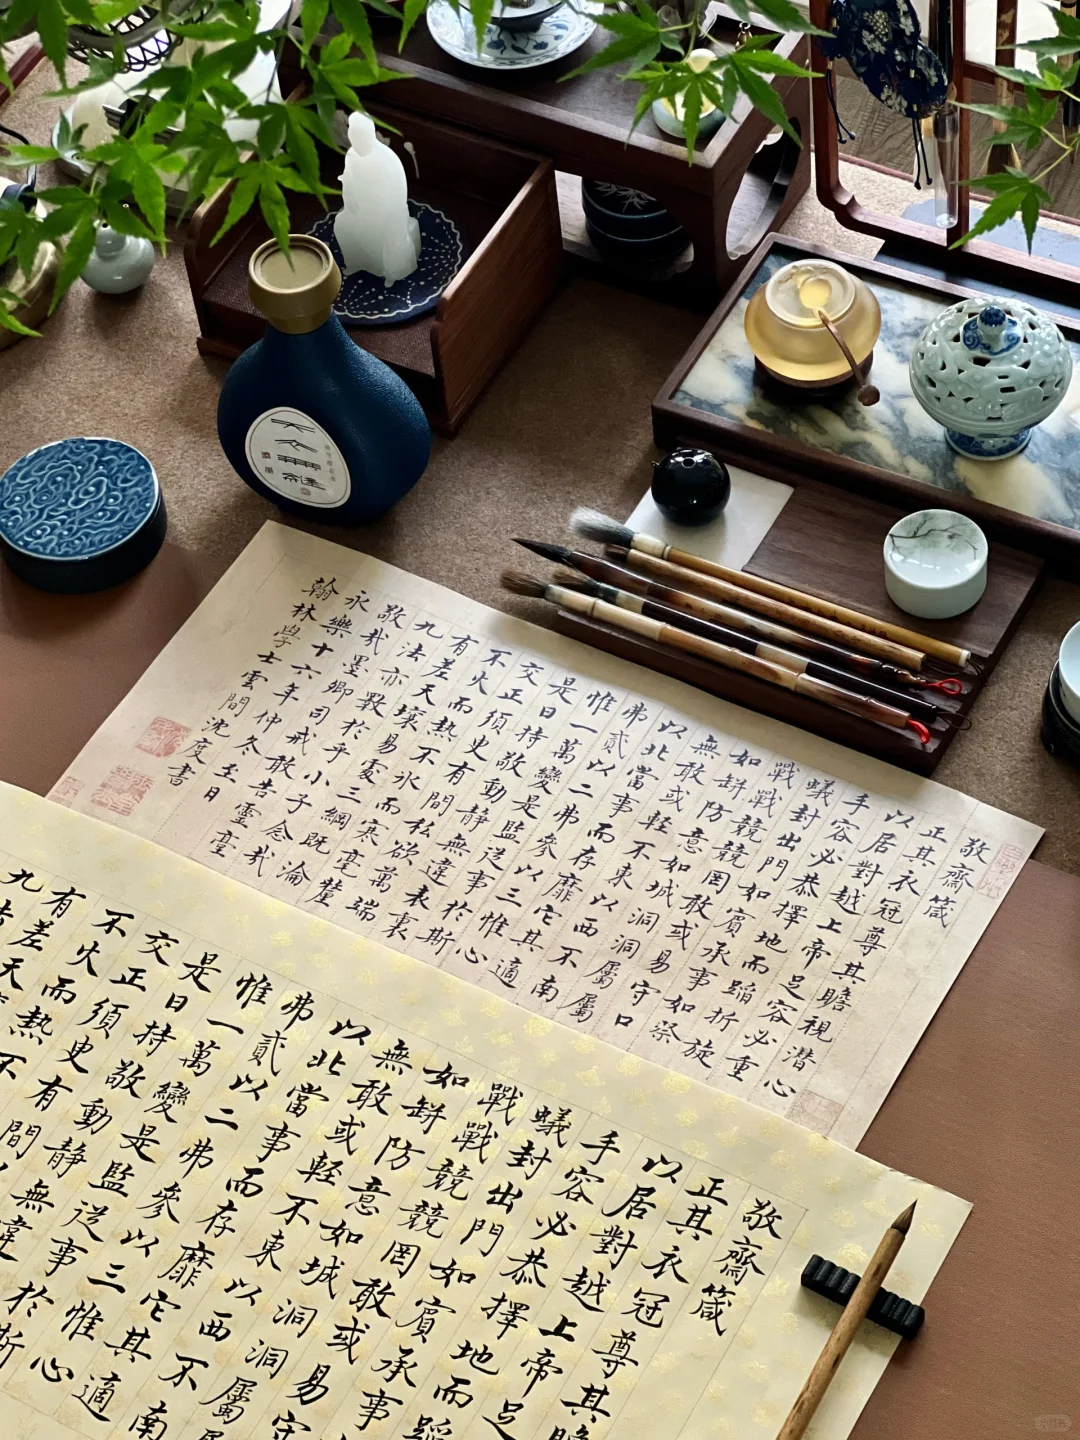 敬齋箴
正其衣冠尊其瞻視潛心
以居對越上帝足容必重
手容必恭擇地而蹈折旋
蟻封出門如賓承事如祭
戰戰兢兢罔敢或易守口
如缾防意如城洞洞屬屬
無敢或輕不東以西不南
以北當事而存靡它其適
弗貳以二弗參以三惟心
惟一萬變是監從事於斯
是曰持敬動靜無違表裏
交正須臾有間私欲萬端
不火而熱不冰而寒毫釐
有差天壤易處三綱既淪
九法亦斁於乎小子念哉
敬哉墨卿司戒敢告靈臺
永樂十六年仲冬至日
翰林學士雲間沈度書
敬齋箴
正其衣冠尊其瞻
以居對越上帝足
手容必恭擇地而蹈
蟻封出門如賓承事
戰戰兢兢罔敢或易守
如缾防意如城洞洞屬
無敢或輕不東以西不南
以北當事而存靡它其適
弗貳以二弗參以三惟心
惟一萬變是監從事於斯
是曰持敬動靜無違
交正須臾有間
不火而熱不
有差天
九